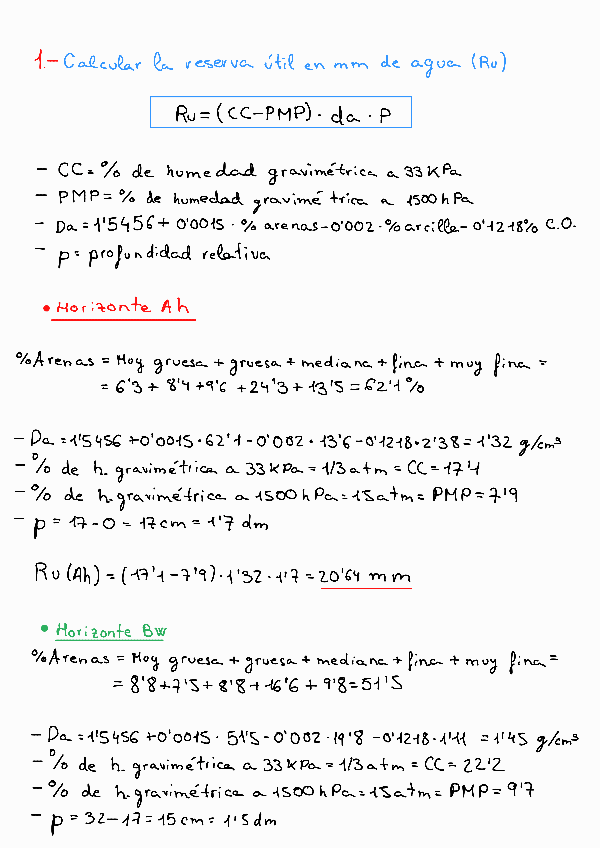 1.- Calcular la reserva útil en mm de agua (Ru)
Ru = (CC-PMP) · da · P
- CC = % de humedad gravimétrica a 33 KPa
- PMP = % de humedad gravimétrica a 1500 hPa
- Da = 1'5456 + 0'0015 · % arenas - 0'002 · % arcilla - 0'1218% C.O.
- p = profundidad relativa
• Horizonte Ah
% Arenas = Moy gruesa + gruesa + mediana + fina + muy fina =
= 6'3 + 8'4 + 9'6 + 24'3 + 13'5 = 62'1 %
- Da = 1'5456 + 0'0015 · 62'1 - 0'002 · 13'6 - 0'1218 · 2'38 = 1'32 g/cm³
- % de h. gravimétrica a 33 KPa = 1/3 atm = CC = 17'1
- % de h. gravimétrica a 1500 hPa = 15 atm = PMP = 7'9
- p = 17 - 0 = 17 cm = 1'7 dm
Ru (Ah) = (17'1 - 7'9) · 1'32 · 1'7 = 20'64 mm
• Horizonte Bw
% Arenas = Moy gruesa + gruesa + mediana + fina + muy fina =
= 8'8 + 7'5 + 8'8 + 16'6 + 9'8 = 51'5
- Da = 1'5456 + 0'0015 · 51'5 - 0'002 · 19'8 - 0'1218 · 1'11 = 1'45 g/cm³
- % de h. gravimétrica a 33 KPa = 1/3 atm = CC = 22'2
- % de h. gravimétrica a 1500 hPa = 15 atm = PMP = 9'7
- p = 32 - 17 = 15 cm = 1'5 dm